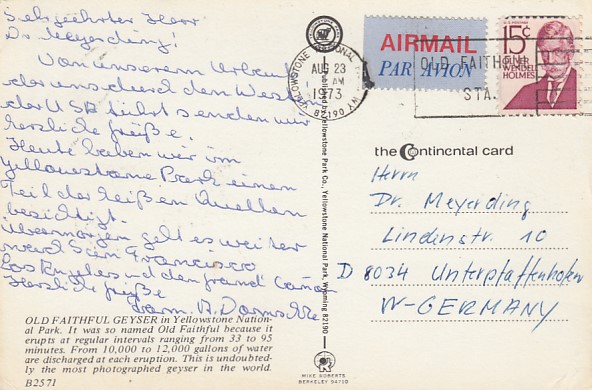 Sehr geehrter Herr
Dr. Meyerding!
Von unserem Urlaub
der uns durch den Westen
der USA führt senden wir
herzliche Grüße.
Heute haben wir im
Yellowstone Park einen
Teil der heißen Quellen
besichtigt.
Übermorgen geht es weiter
nach San Francisco
Los Angeles und den Grand Canon
Herzliche Grüße
Fam.
OLD FAITHFUL GEYSER in Yellowstone Nation-
al Park. It was so named Old Faithful because it
erupts at regular intervals ranging from 33 to 95
minutes. From 10,000 to 12,000 gallons of water
are discharged at each eruption. This is undoubted-
ly the most photographed geyser in the world.
B2571
YELLOWSTONE NATIONAL
AUG 23
AM
1973
82190
AIRMAIL
PAR AVION
OLD FAITHFUL
STA.
15¢
OLIVER
WENDELL
HOLMES
the Continental card
Herrn
Dr. Meyerding
Lindenstr. 10
D 8034 Unterpfaffenhofen
W-GERMANY
by Yellowstone Park Co., Yellowstone National Park, Wyoming 82190
MIKE ROBERTS
BERKELEY 94710